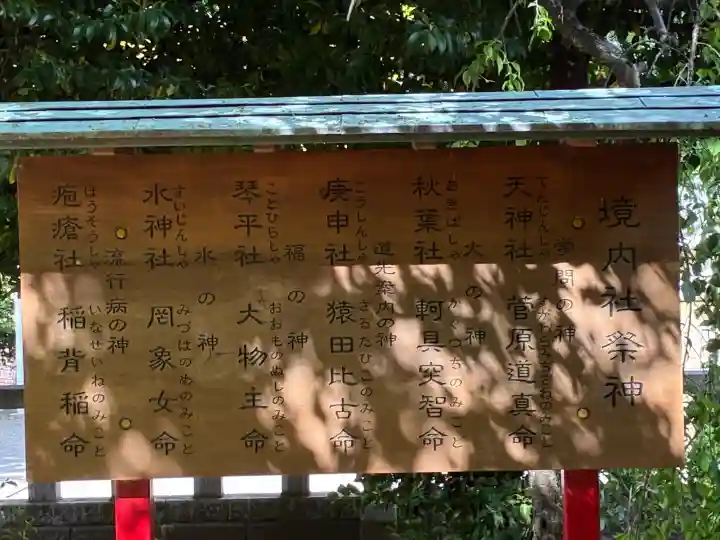 境内社祭神
学問の神
てんじんしゃ すがわらみちざねのみこと
天神社 菅原道真命
火の神
あきばしゃ かぐつちのみこと
秋葉社 軻具突智命
道先案内の神
こうしんしゃ さるたひこのみこと
庚申社 猿田比古命
福の神
ことひらしゃ おおものぬしのみこと
琴平社 大物主命
水の神
すいじんしゃ みづはのめのみこと
水神社 罔象女命
流行病の神
ほうそうしゃ いなせいねのみこと
疱瘡社 稲背稲命